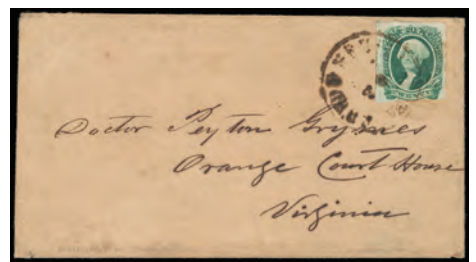 Doctor Peyton Grymes
Orange Court House
Virginia